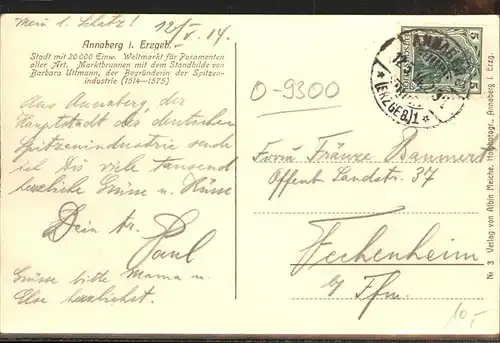 Mein l. Schatz! 12/V. 14.
Annaberg i. Erzgeb.
Stadt mit 20 000 Einw. Weltmarkt für Posamenten
aller Art. Marktbrunnen mit dem Standbilde von
Barbara Uttmann, der Begründerin der Spitzen-
industrie (1514—1575)
Aus Annaberg, der
Hauptstadt der deutschen
Spitzenindustrie sende
ich Dir viele tausend
herzliche Grüsse u. Küsse
Dein tr. Paul
Grüsse bitte Mama u.
Else herzlichst.
5
5
(ERZGEB.) 1
O-9300
Frau Fränze
Offenb. Landstr. 37
Fechenheim
b/ Ffm.
Nr 3 Verlag von Albin Meiche, Hofphotogr., Annaberg i. Erzg.
10,-